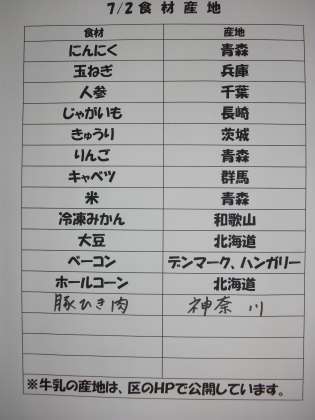 7/2食材産地
食材 産地
にんにく 青森
玉ねぎ 兵庫
人参 千葉
じゃがいも 長崎
きゅうり 茨城
りんご 青森
キャベツ 群馬
米 青森
冷凍みかん 和歌山
大豆 北海道
ベーコン デンマーク、ハンガリー
ホールコーン 北海道
豚ひき肉 神奈川
※牛乳の産地は、区のHPで公開しています。